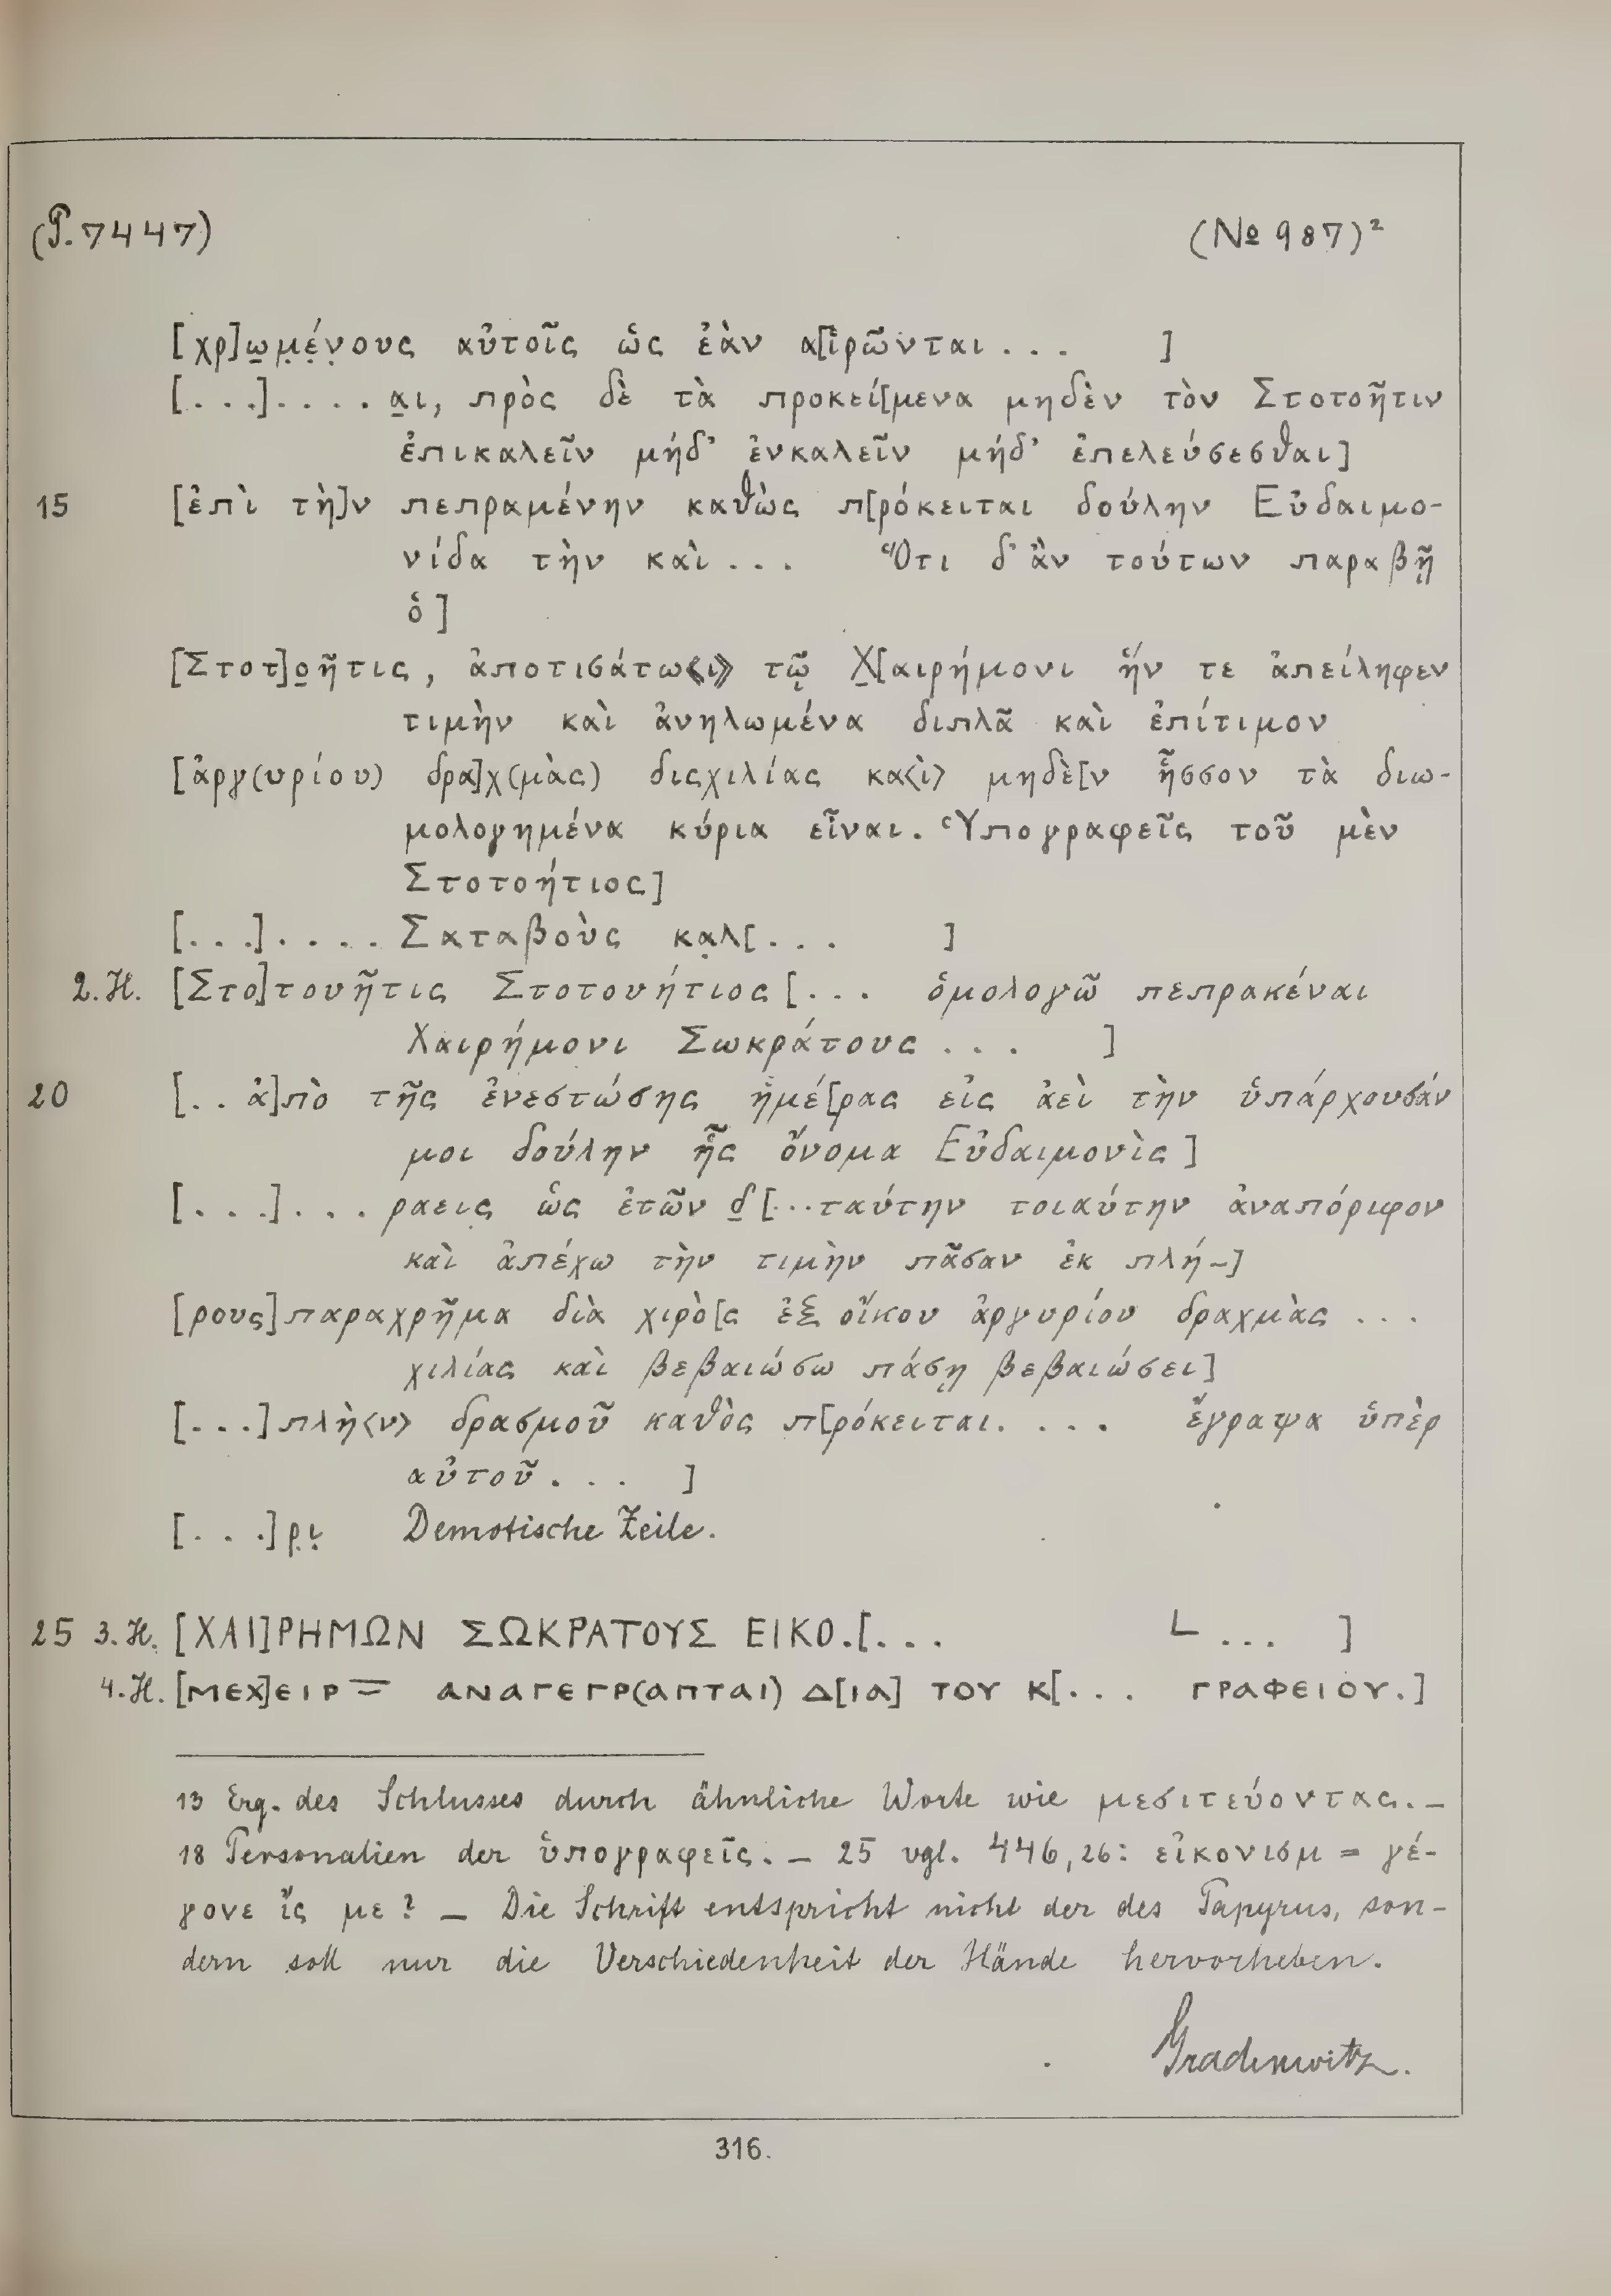 (P. 7447) (№ 987)²
[χρ]ω̣μ̣έ̣ν̣ους αὐτοῖς ὡς ἐὰν α[ἱρῶνται . . . ]
[. . .] . . . . α̣ι, πρὸς δὲ τὰ προκεί[μενα μηδὲν τὸν Στοτοῆτιν
ἐπικαλεῖν μήδ' ἐνκαλεῖν μήδ' ἐπελεύσεσθαι]
15 [ἐπὶ τὴ]ν πεπραμένην καθὼς π[ρόκειται δούλην Εὐδαιμο-
νίδα τὴν καὶ . . . Ὅτι δ' ἂν τούτων παραβῇ
ὁ]
[Στοτ]ο̣ῆτις, ἀποτισάτω⟪ι⟫ τῷ Χ̣[αιρήμονι ἥν τε ἀπείληφεν
τιμὴν καὶ ἀνηλωμένα διπλᾶ καὶ ἐπίτιμον
[ἀργ(υρίου) δρα]χ(μὰς) διςχιλίας κα<ὶ> μηδὲ[ν ἧσσον τὰ διω-
μολογημένα κύρια εἶναι. Ὑπογραφεῖς τοῦ μὲν
Στοτοήτιος]
[. . .] . . . . Σαταβοὺς κα̣λ[. . . ]
2. H. [Στο]τουῆτις Στοτουήτιος [. . . ὁμολογῶ πεπρακέναι
Χαιρήμονι Σωκράτους . . . ]
20 [. . ἀ]πὸ τῆς ἐνεστώσης ἡμέ[ρας εἰς ἀεὶ τὴν ὑπάρχουσάν
μοι δούλην ἧς ὄνομα Εὐδαιμονὶς]
[. . .] . . . ραεις ὡς ἐτῶν δ̣ [. . . ταύτην τοιαύτην ἀναπόριφον
καὶ ἀπέχω τὴν τιμὴν πᾶσαν ἐκ πλή-]
[ρους] παραχρῆμα διὰ χιρὸ[ς ἐξ οἴκου ἀργυρίου δραχμὰς . . .
χιλίας καὶ βεβαιώσω πάσῃ βεβαιώσει]
[. . .] πλὴ<ν> δρασμοῦ καθὸς π[ρόκειται. . . . ἔγραψα ὑπὲρ
αὐτοῦ . . . ]
[. . .] ρ̣ι̣ Demotische Zeile.
25 3. H. [ΧΑΙ]ΡΗΜΩΝ ΣΩΚΡΑΤΟΥΣ ΕΙΚΟ.[. . . L . . . ]
4. H. [ΜΕΧ]ΕΙΡ = ΑΝΑΓΕΓΡ(ΑΠΤΑΙ) Δ[ΙΑ] ΤΟΥ Κ[. . . ΓΡΑΦΕΙΟΥ.]
13 Erg. des Schlusses durch ähnliche Worte wie μεσιτεύοντας. –
18 Personalien der ὑπογραφεῖς. – 25 vgl. 446, 26: εἰκονισμ = γέ-
γονε ἴς με? – Die Schrift entspricht nicht der des Papyrus, son-
dern soll nur die Verschiedenheit der Hände hervorheben.
Gradenwitz.
316.